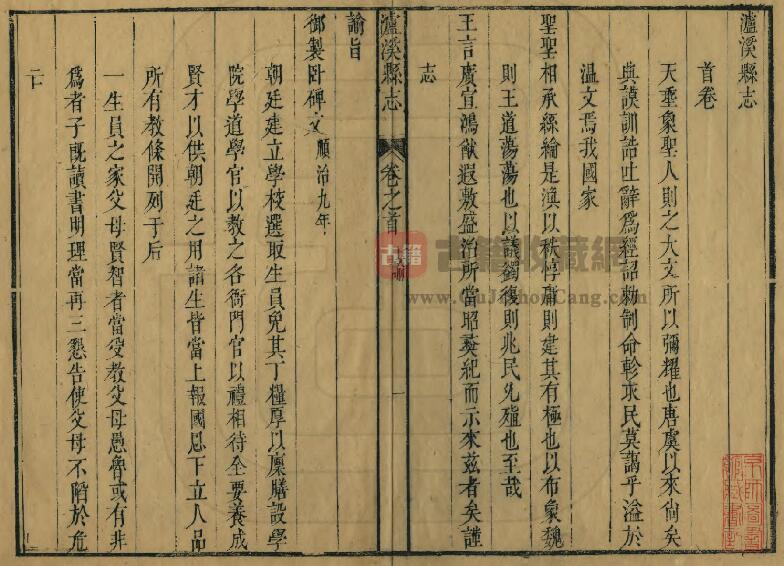 瀘溪縣志
首卷
天垂象聖人則之大文所以彌耀也唐虞以來尚矣
典謨訓誥吐辭為經詔勅制命軫求民莫藹乎溢於
温文焉我國家
聖聖相承絲綸是渙以秩惇庸則建其有極也以布象魏
則王道蕩蕩也以議蠲復則兆民允殖也至哉
王言廣宣鴻猷遐敷盛治所當昭彝紀而示來茲者矣謹
志
瀘溪縣志 卷之首 一
諭旨
御製臥碑文 順治九年
朝廷建立學校選取生員免其丁糧厚以廩膳設學
院學道學官以教之各衙門官以禮相待全要養成
賢才以供朝廷之用諸生皆當上報國恩下立人品
所有教條開列于后
一生員之家父母賢智者當受教父母愚魯或有非
為者子既讀書明理當再三懇告使父母不陷於危
亡
古籍 古籍收藏網
www.GuJiShouCang.com